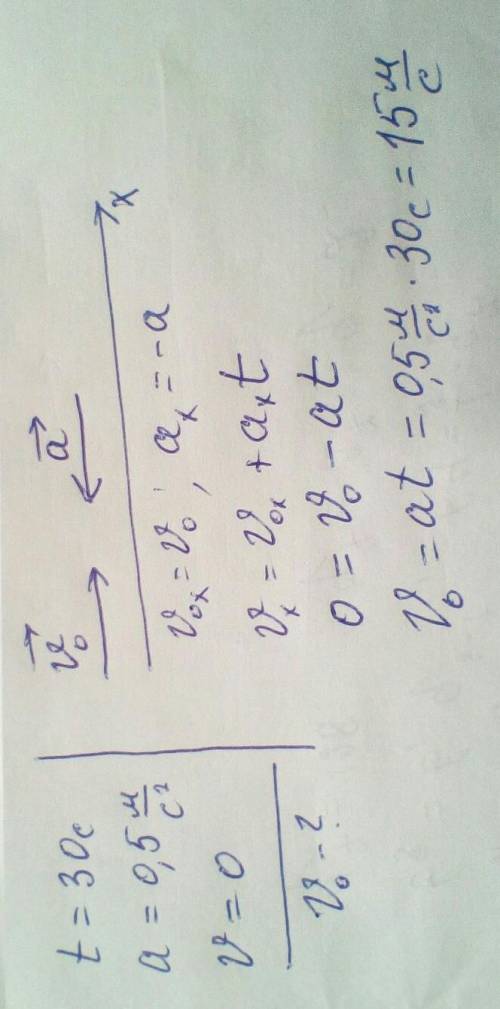 t = 30с
a = 0,5 м/с²
v = 0
v₀ - ?
v⃗₀ a⃗
x
v₀ₓ = v₀; aₓ = -a
vₓ = v₀ₓ + aₓt
0 = v₀ - at
v₀ = at = 0,5 м/с² · 30с = 15 м/с